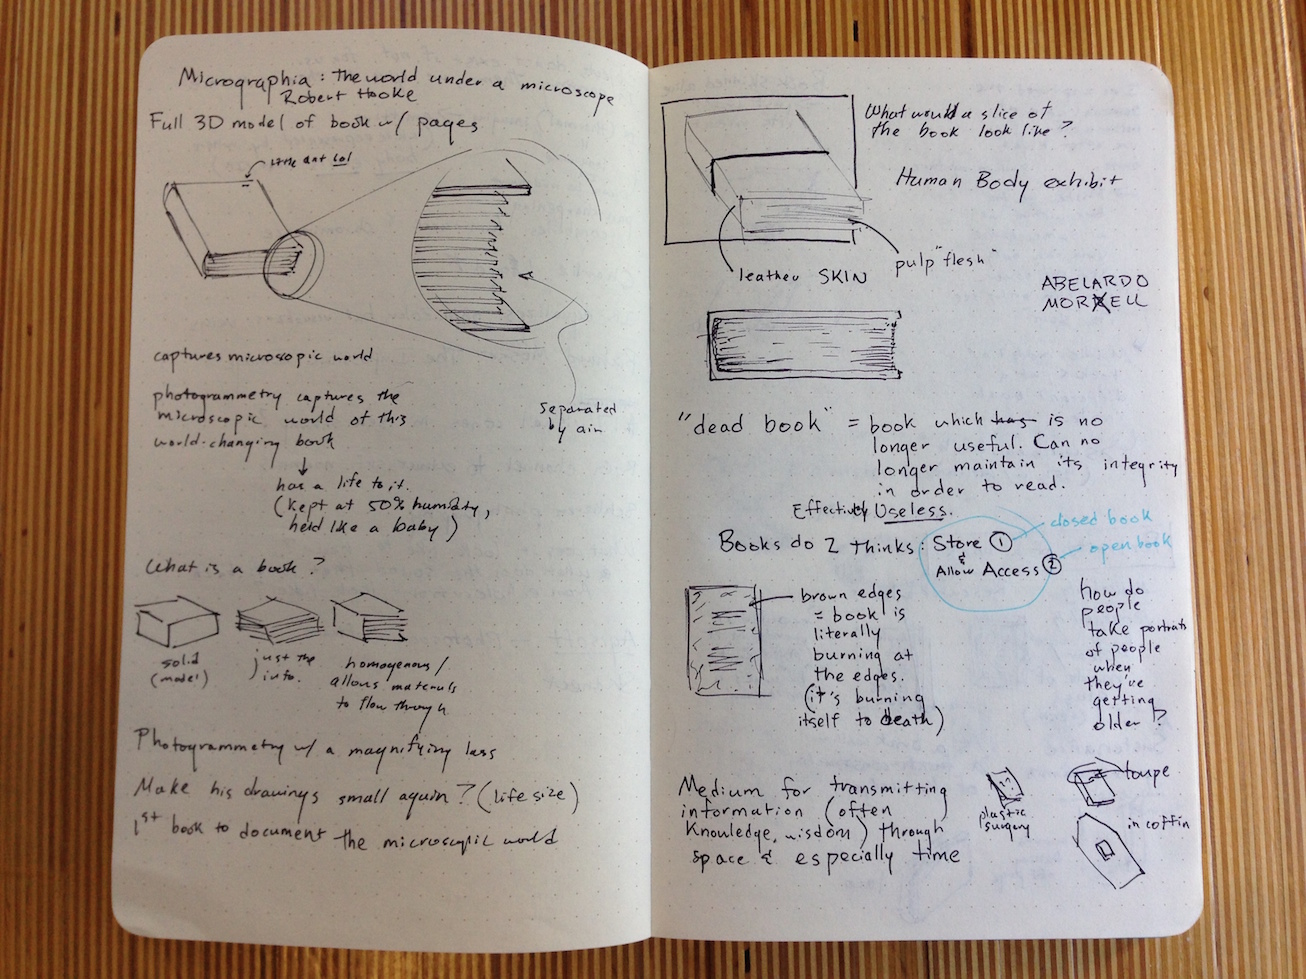 Micrographia: the world under a microscope
Robert Hooke
Full 3D model of book w/ pages
little dot lol
separated
by air
captures microscopic world
photogrammetry captures the
microscopic world of this
world-changing book
has a life to it.
(kept at 50% humidity,
held like a baby)
What is a book?
solid
(model)
just the
info.
homogenous/
allows materials
to flow through
Photogrammetry w/ a magnifying lens
Make his drawings small again? (life size)
1st book to document the microscopic world
What would a slice of
the book look like?
Human Body exhibit
leather SKIN
pulp "flesh"
ABELARDO
MORXELL
"dead book" = book which has is no
longer useful. Can no
longer maintain its integrity
in order to read.
Effectively Useless.
Books do 2 thinks: Store 1
&
Allow Access 2
closed book
open book
brown edges
= book is
literally
burning at
the edges.
(it's burning
itself to death)
how do
people
take portraits
of people
when
they've
getting
older?
Medium for transmitting
information (often
knowledge, wisdom) through
space & especially time
plastic
surgery
toupe
in coffin